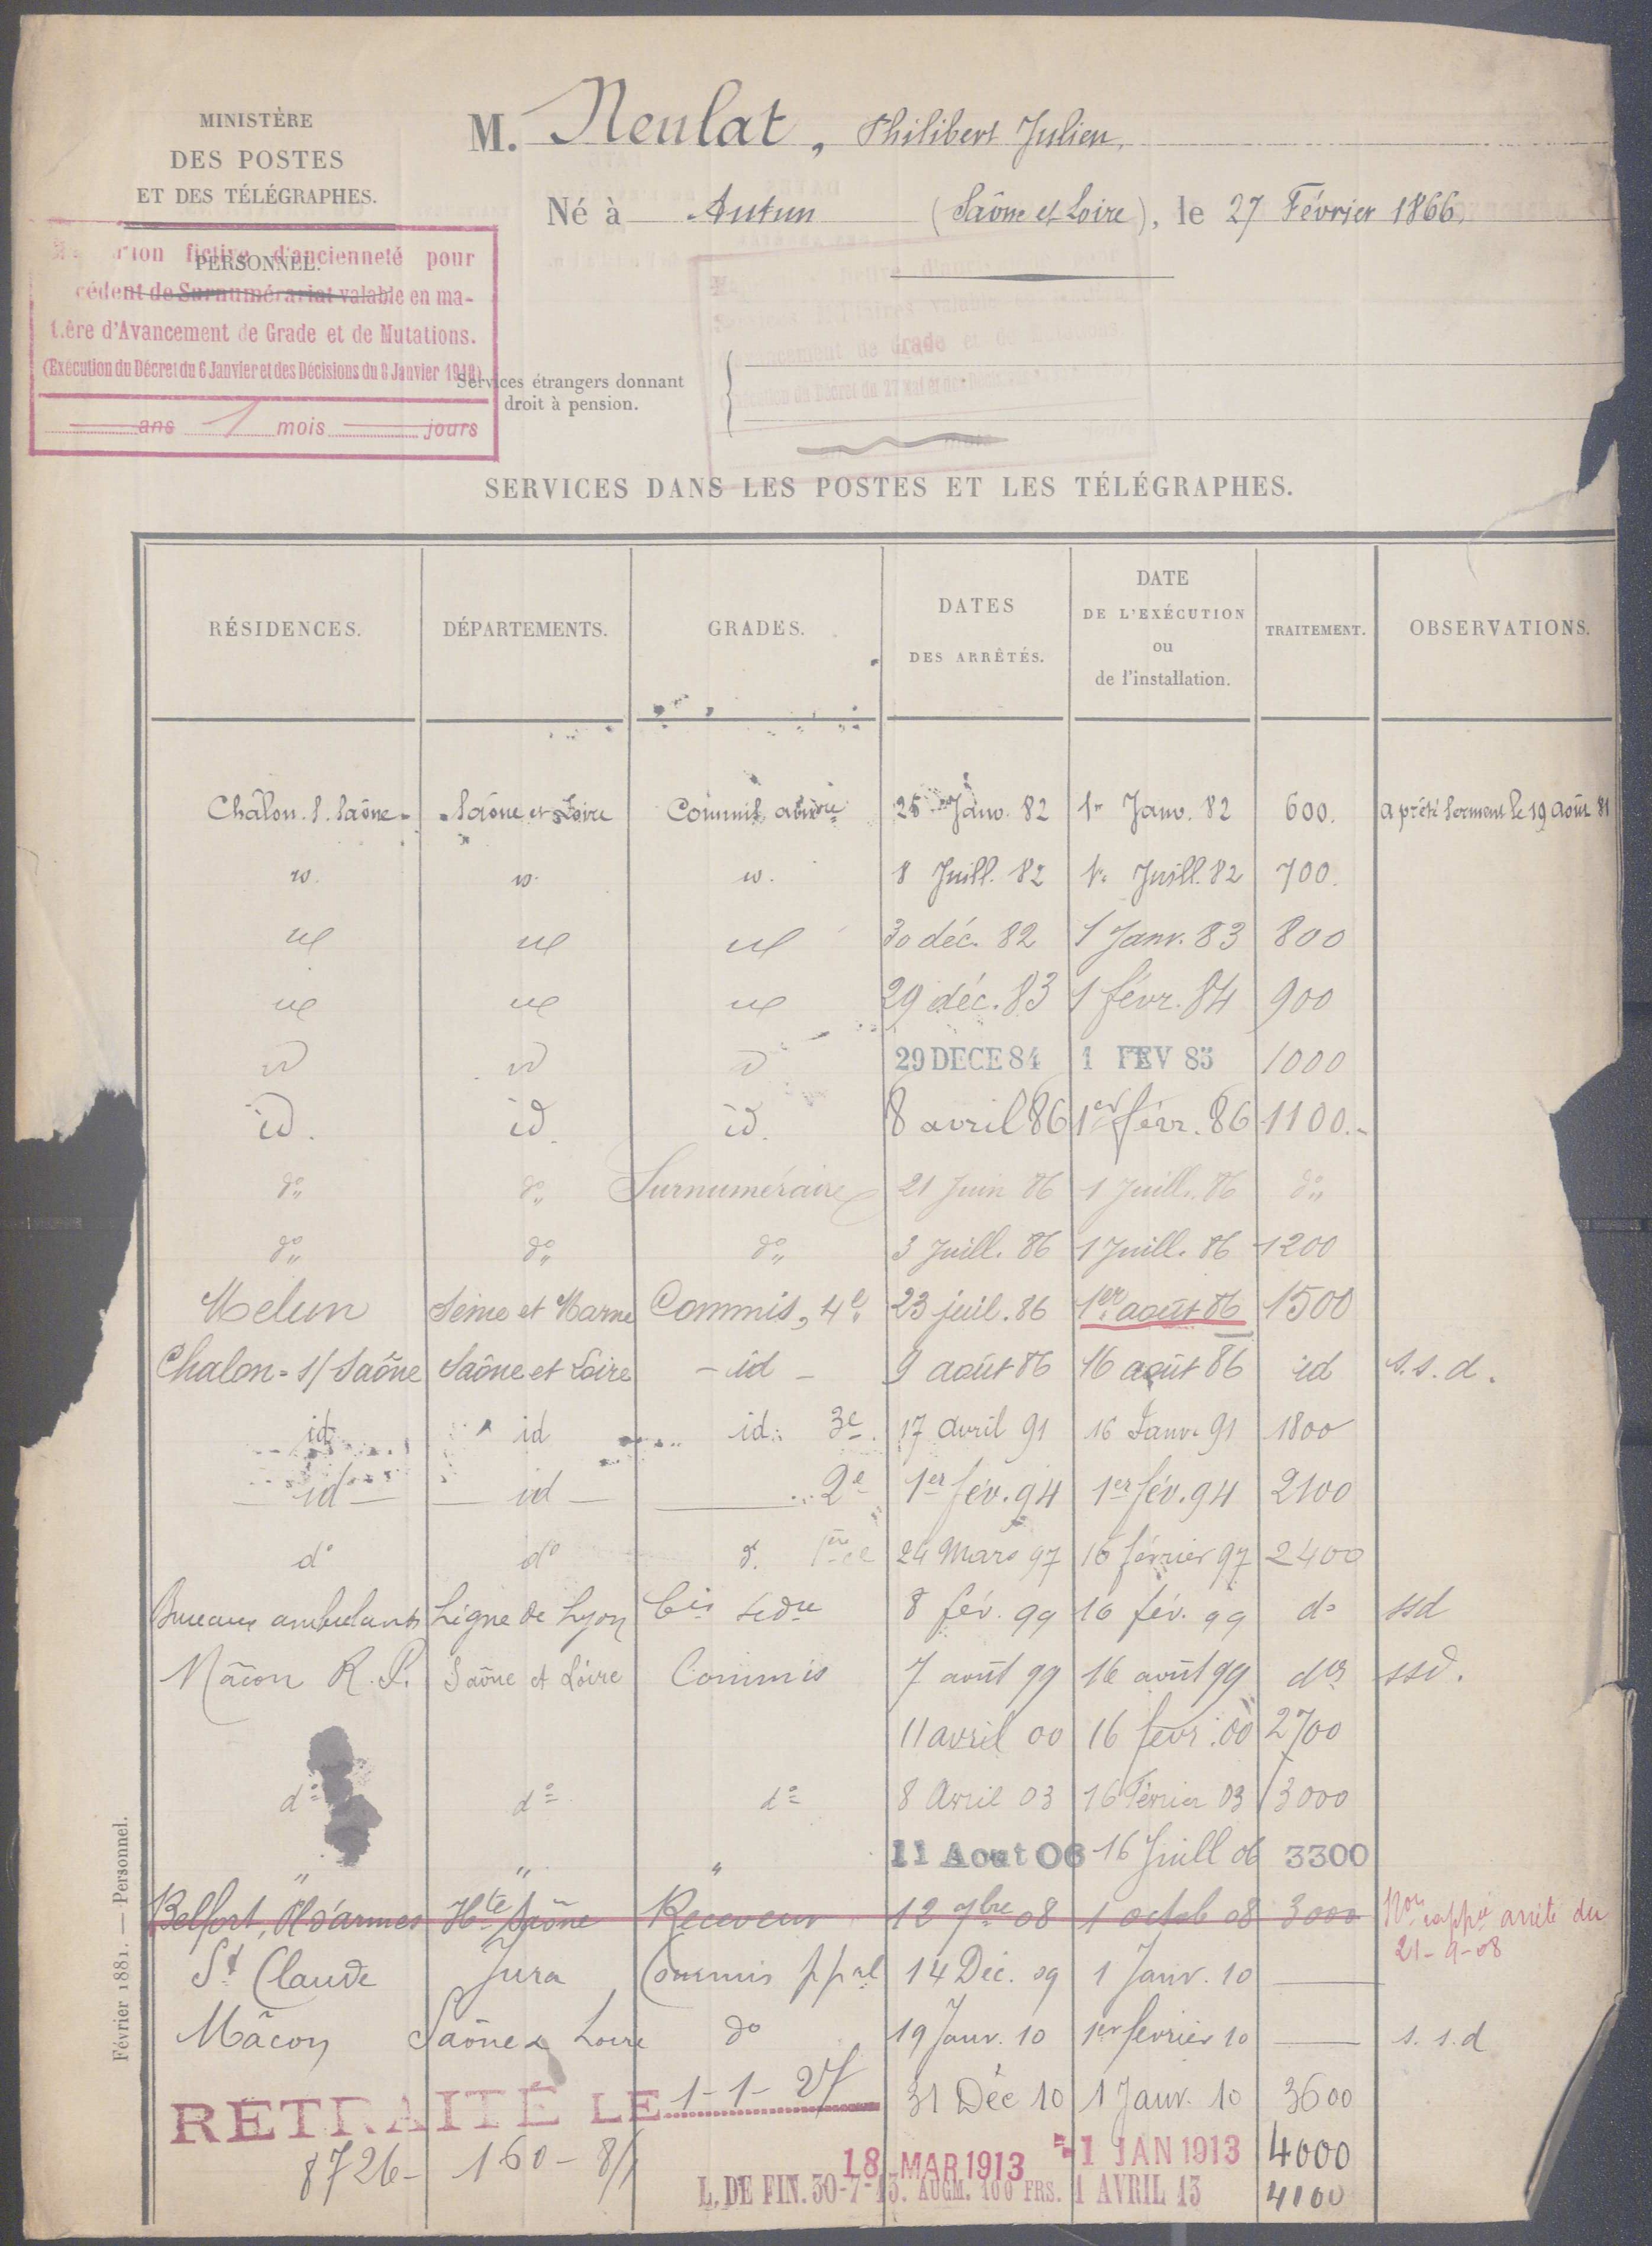 MINISTÈRE
DES POSTES
ET DES TÉLÉGRAPHES.
PERSONNEL.
M. Neulat, Philibert Julien,
Né à Autun (Saône et Loire), le 27 Février 1866.
fictive d'ancienneté pour
de Surnumérariat valable en ma-
tière d'Avancement de Grade et de Mutations.
(Exécution du Décret du 6 Janvier et des Décisions du 8 Janvier 1918)
ans 1 mois jours
Services étrangers donnant
droit à pension.
SERVICES DANS LES POSTES ET LES TÉLÉGRAPHES.
RÉSIDENCES. DÉPARTEMENTS. GRADES. DATES DES ARRÊTÉS. DATE DE L'EXÉCUTION ou de l'installation. TRAITEMENT. OBSERVATIONS.
Châlon. S. Saône Saône et Loire Commis auxre 25 Janv. 82 1er Janv. 82 600. a prêté serment le 19 août 81
id. id. id. 8 Juill. 82 1er Juill. 82 700.
id id id 30 déc. 82 1 Janv. 83 800
id id id 29 déc. 83 1 févr. 84 900
id id id 29 DECE 84 1 FEV 85 1000
id. id. id. 8 avril 86 1er févr. 86 1100.-
do do Surnuméraire 21 Juin 86 1 Juill. 86 do
do do do 3 Juill. 86 1 Juill. 86 1200
Melun Seine et Marne Commis, 4e 23 juil. 86 1er août 86 1500
Chalon-s/Saône Saône et Loire - id - 9 août 86 16 août 86 id s.s.d.
id id id. 3e. 17 avril 91 16 Janv. 91 1800
- id - - id - 2e 1er fév. 94 1er fév. 94 2100
do do d. 1ère cl 24 Mars 97 16 février 97 2400
Bureaux ambulants Ligne de Lyon Cis sedre 8 fév. 99 16 fév. 99 do ssd
Mâcon R. P. Saône et Loire Commis 7 août 99 16 août 99 do ssd.
11 avril 00 16 févr. 00 2700
do do do 8 Avril 03 16 Février 03 3000
" " " 11 Aout 06 16 Juill 06 3300
Belfort, Pl d'armes Hte Saône Receveur 12 7bre 08 1 octob 08 3000 Non rappé arrêté du
21-9-08
St Claude Jura Commis ppal 14 Déc. 09 1 Janv. 10 —
Mâcon Saône & Loire do 19 Janv. 10 1er février 10 — s.s.d
RETRAITÉ LE 1-1-27 31 Déc 10 1 Janv. 10 3600
8726- 160- 18 MAR 1913 1 JAN 1913 4000
L. DE FIN. 30-7-13. AUGM. 100 FRS. 1 AVRIL 13 4100
Février 1881. — Personnel.